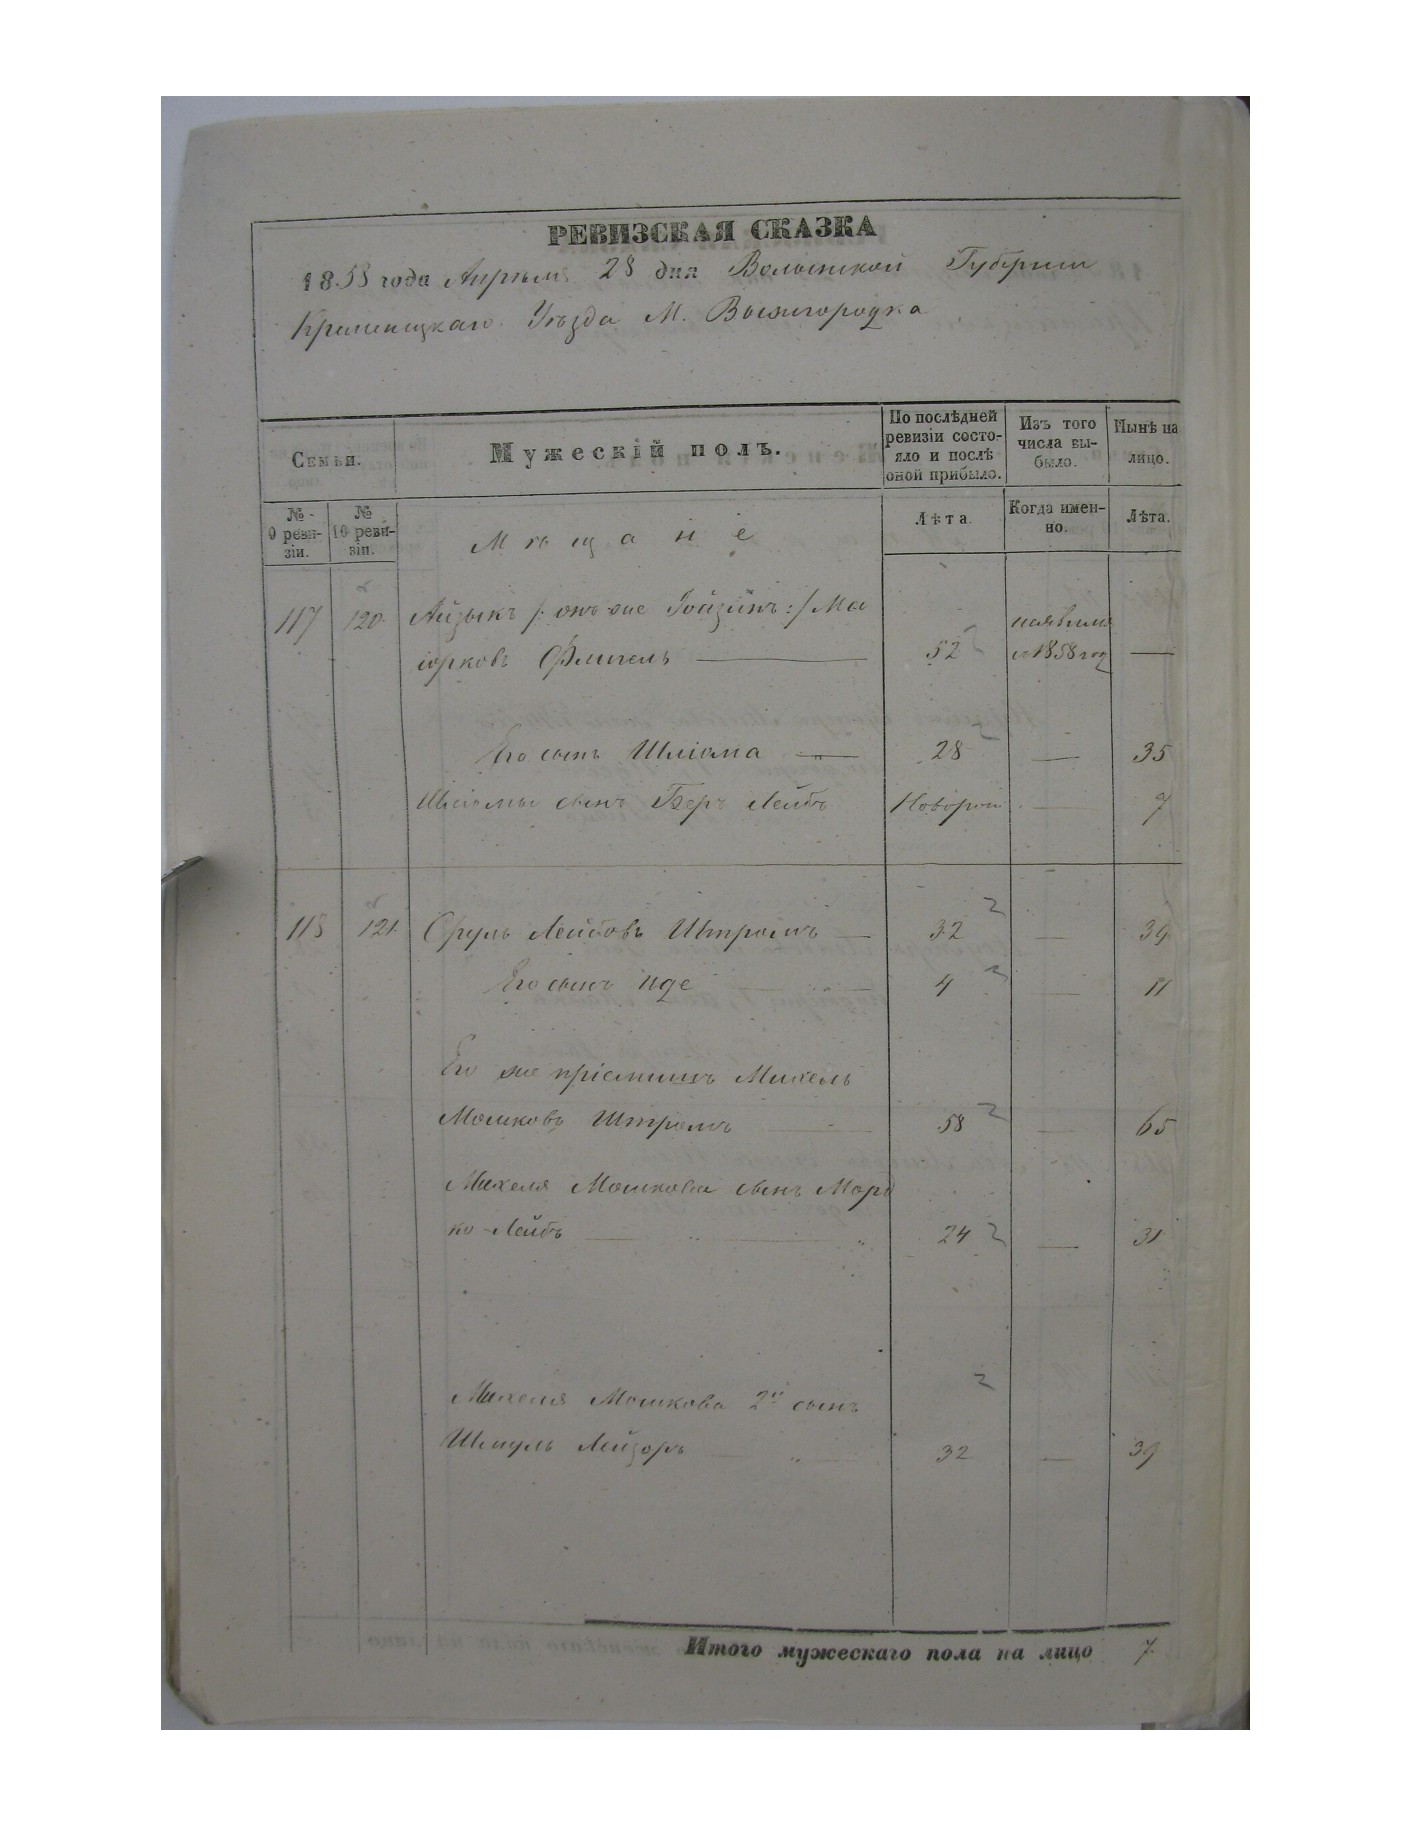 РЕВИЗСКАЯ СКАЗКА
1858 года Апреля 28 дня Волынской Губернии
Кременецкаго Уѣзда М. Вышгородка
Семьи.
Мужескій полъ.
По послѣдней ревизіи состо-
яло и послѣ
оной прибыло.
Изъ того
числа вы-
было.
Нынѣ на
лицо.
№
9 реви-
зіи.
№
10 реви-
зіи.
Мѣщане
Лѣта.
Когда имен-
но.
Лѣта.
117 120. Айзыкъ /: онъ же :/ Ма
іорковъ Флигель — 52 1858 —
Его сынъ Шліома — 28 — 35
Шліомы сынъ Беръ Лейбъ Новорож — 7
118 121. Сруль Лейбовъ Штромъ — 32 — 39
Его сынъ Иде 4 — 11
Его же пріемышъ Михель
Мошковъ Штромъ — 58 — 65
Михеля Мошкова сынъ Морд
ко-Лейбъ — 24 — 31
Михеля Мошкова 2й сынъ
Шмуль Лейзоръ — 32 — 39
Итого мужескаго пола на лицо 7